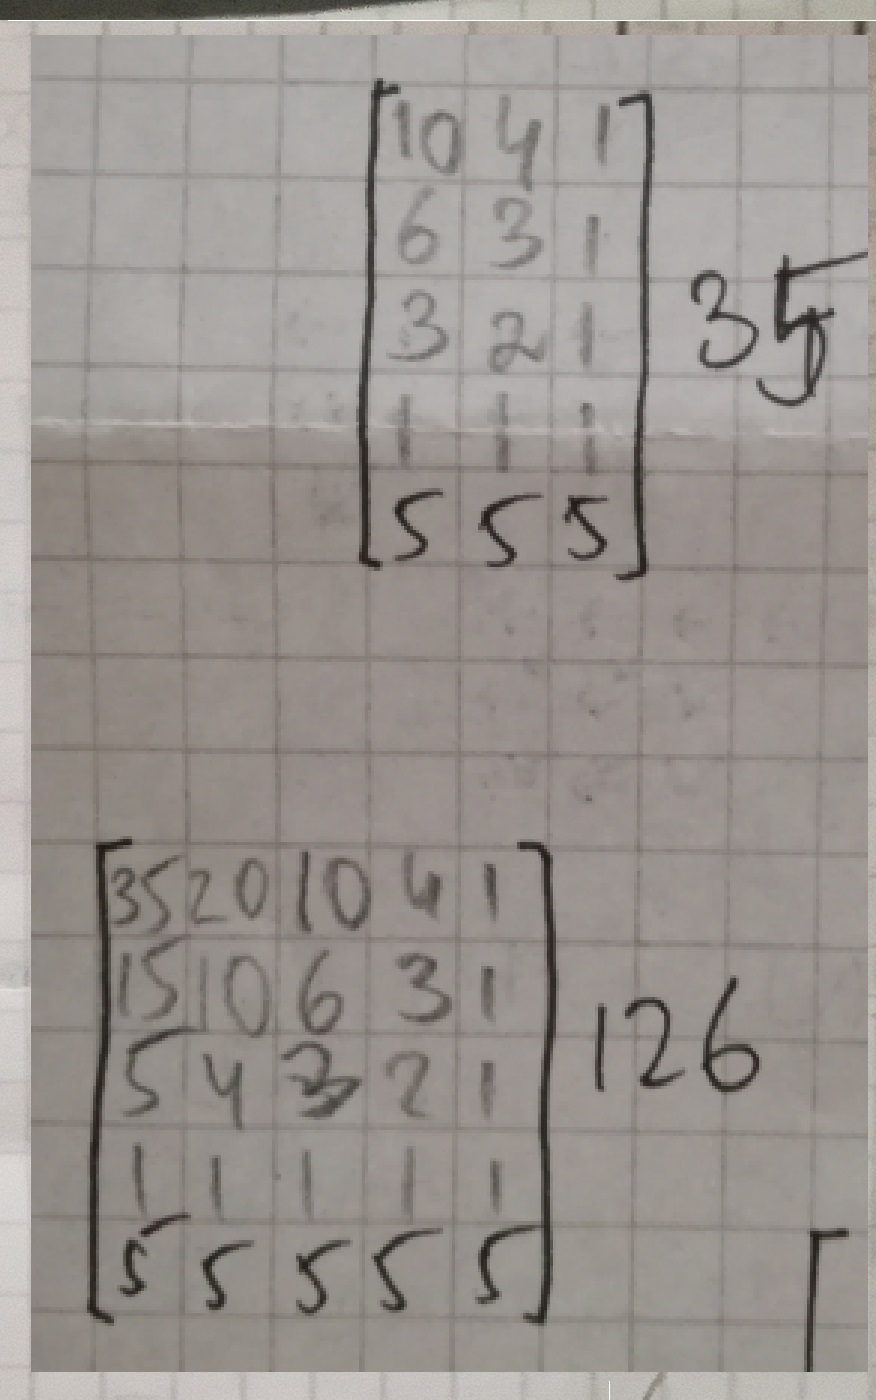 10 4 1
6 3 1
3 2 1
1 1 1
5 5 5
35
35 20 10 4 1
15 10 6 3 1
5 4 3 2 1
1 1 1 1 1
5 5 5 5 5
126